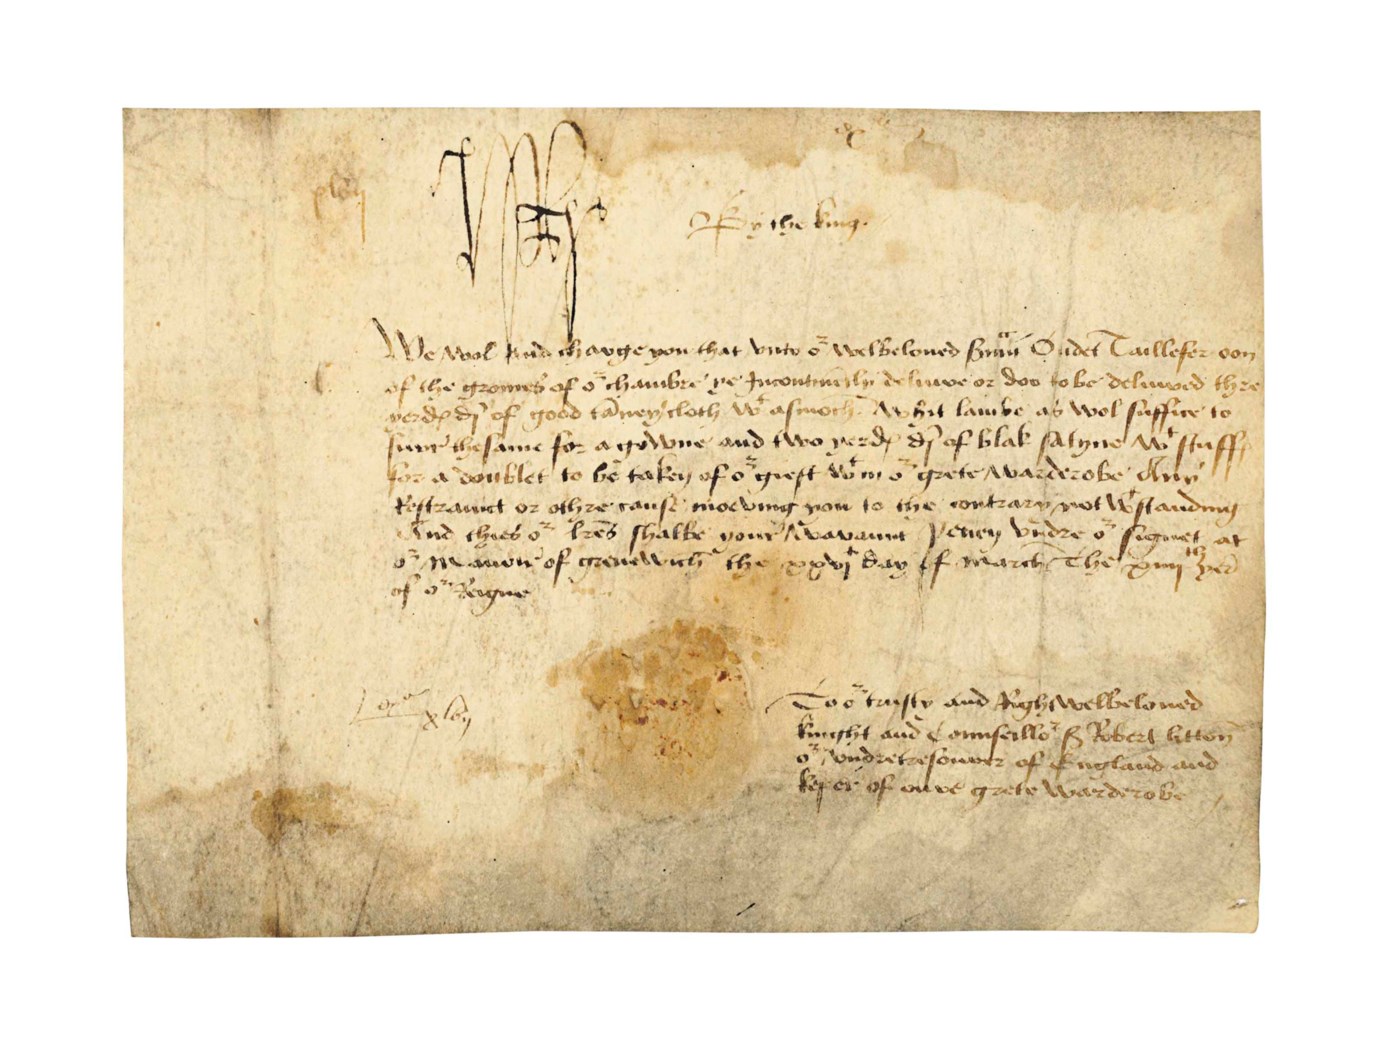 By the king.
We wol and charge you that vnto oʳ welbeloued Oudet Taillefer oon
of the gromes of oʳ chambre ye Incontinently deliuꝰe or doo to be deliuꝰed thre
yerdꝭ dī of good tawney cloth wᵗ asmoch lambe as wol suffice to
furre thesame for a gowne and two yerdꝭ dī of blak satyne wᵗ stuff
for a doublet to be taken of oʳ gieft wᵗin oʳ grete warderobe Any
Restrainct or othre cause moeving you to the contrary not wᵗstanding
And thies oʳ lr̄es shalbe yourꝰ warraunt yeuen vndre oʳ signet at
oʳ Manoir of grenewich the xxvjᵗ day of March The xiiijᵗʰ yer
of oʳ Reigne
To oʳ trusty and Right welbeloued
knight and Counseilloʳ Sʳ Robert litton
oʳ vndretresourer of England and
keper of oure grete warderobe